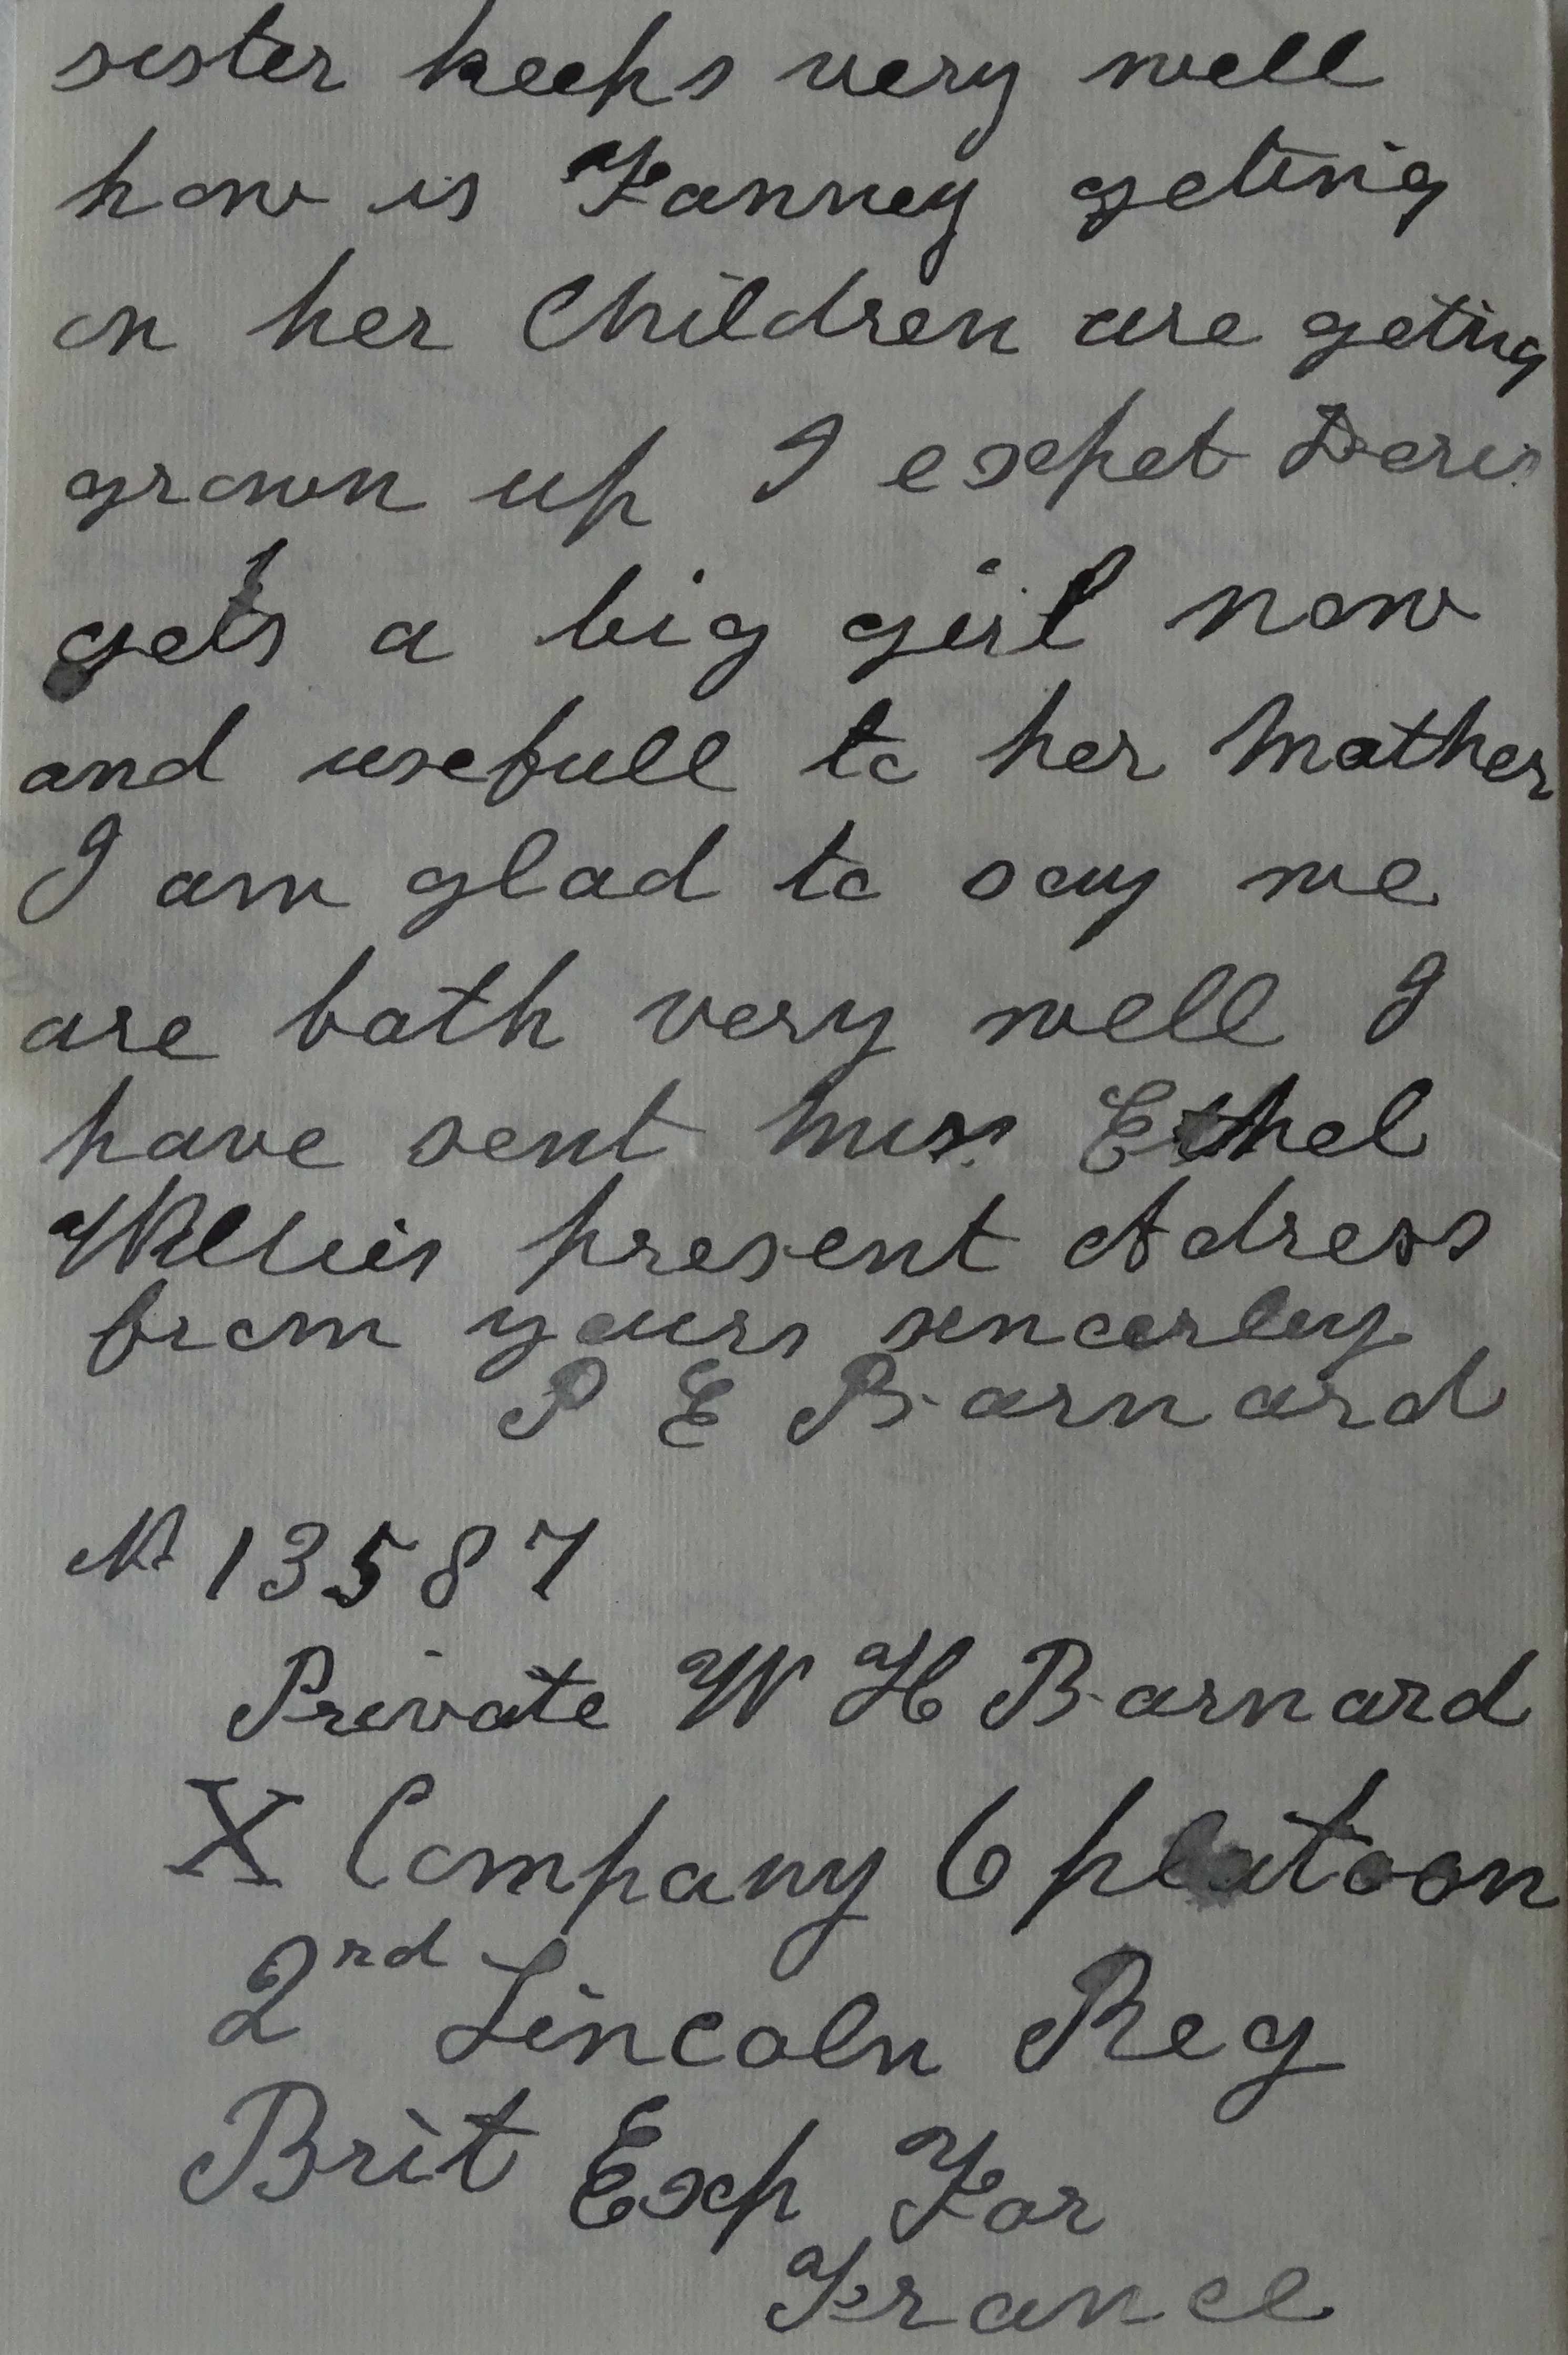 sister keeps very well
how is Fanney geting
on her Children are geting
grown up I expet Doris
gets a big girl now
and usefull to her Mother
I am glad to say we
are both very well I
have sent Miss Ethel
Willies present Adress
from yours sincerley
P E Barnard
No 13587
Private W H Barnard
X Company 6 platoon
2rd Lincoln Reg
Brit Exp For
France